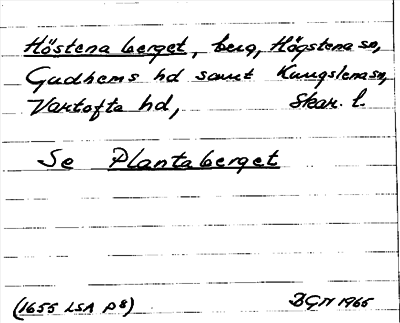 Höstena berget, berg, Högstena sn,
Gudhems hd samt Kungslena sn,
Vartofta hd, Skar. l.
Se Plantaberget
(1655 LSA P8) BGN 1965